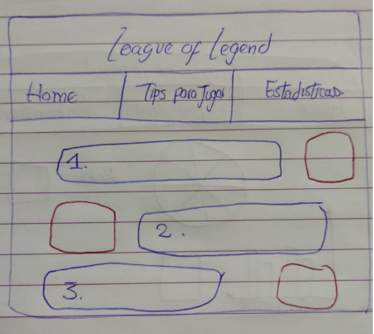 League of legend
Home Tips para Jugar Estadisticas
1.
2.
3.